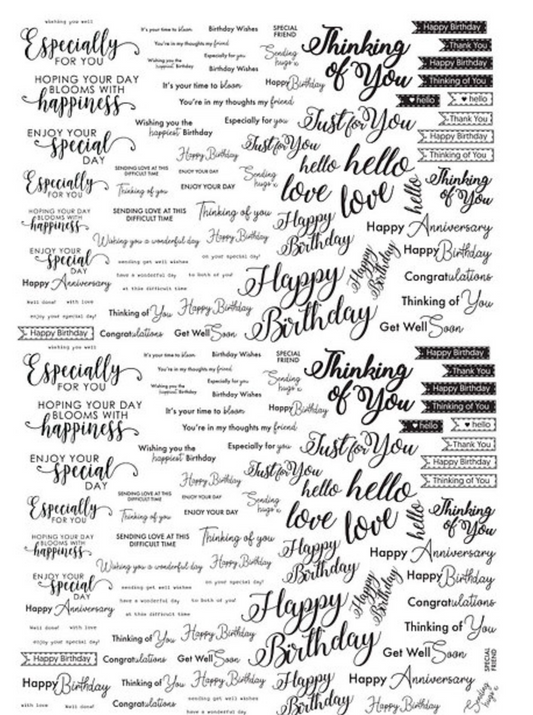 wishing you well
Especially
FOR YOU
It's your time to bloom
Birthday Wishes
SPECIAL
FRIEND
You're in my thoughts my friend
Wishing you the
happiest Birthday
Especially for you
Birthday Wishes
Sending
hugs
Thinking
of You
Happy Birthday
Thank You
Happy Birthday
Thinking of You
HOPING YOUR DAY
BLOOMS WITH
happiness
It's your time to bloom
Happy Birthday
You're in my thoughts my friend
hello
hello
Thank You
Happy Birthday
Thinking of You
ENJOY YOUR
special
DAY
Wishing you the
happiest Birthday
Especially for you
Just for You
Happy Birthday
Just for You
hello
hello
Especially
FOR YOU
SENDING LOVE AT THIS
DIFFICULT TIME
ENJOY YOUR DAY
Thinking of you
ENJOY YOUR DAY
Sending
hugs
love
love
hello
Thinking
of You
HOPING YOUR DAY
BLOOMS WITH
happiness
SENDING LOVE AT THIS
DIFFICULT TIME
Thinking of you
Happy
Birthday
Happy Anniversary
Wishing you a wonderful day
Happy Birthday
Happy
Birthday
Happy Birthday
ENJOY YOUR
special
DAY
sending get well wishes
on your special day!
have a wonderful day
to both of you!
at this difficult time
Happy
Birthday
Congratulations
Happy Anniversary
Well done!
with love
enjoy your special day!
Thinking of You
Happy Birthday
Thinking of You
Happy Birthday
Congratulations
Get Well Soon
Get Well Soon
wishing you well
Especially
FOR YOU
It's your time to bloom
Birthday Wishes
SPECIAL
FRIEND
You're in my thoughts my friend
Wishing you the
happiest Birthday
Especially for you
Birthday Wishes
Sending
hugs
Thinking
of You
Happy Birthday
Thank You
Happy Birthday
Thinking of You
HOPING YOUR DAY
BLOOMS WITH
happiness
It's your time to bloom
Happy Birthday
You're in my thoughts my friend
hello
hello
Thank You
Happy Birthday
Thinking of You
ENJOY YOUR
special
DAY
Wishing you the
happiest Birthday
Especially for you
Just for You
Happy Birthday
Just for You
hello
hello
Especially
FOR YOU
SENDING LOVE AT THIS
DIFFICULT TIME
ENJOY YOUR DAY
Thinking of you
ENJOY YOUR DAY
Sending
hugs
love
love
hello
Thinking
of You
HOPING YOUR DAY
BLOOMS WITH
happiness
SENDING LOVE AT THIS
DIFFICULT TIME
Thinking of you
Happy
Birthday
Happy Anniversary
Wishing you a wonderful day
Happy Birthday
Happy
Birthday
Happy Birthday
ENJOY YOUR
special
DAY
sending get well wishes
on your special day!
have a wonderful day
to both of you!
at this difficult time
Happy
Birthday
Congratulations
Happy Anniversary
Well done!
with love
enjoy your special day!
Thinking of You
Happy Birthday
Thinking of You
Happy Birthday
Congratulations
Get Well Soon
Get Well Soon
SPECIAL
FRIEND
Happy Birthday
Thinking of You
Happy Birthday
Happy
Birthday
Happy Anniversary
with love
Well done!
Congratulations
sending get well wishes
have a wonderful day
Happy Birthday
Sending
hugs